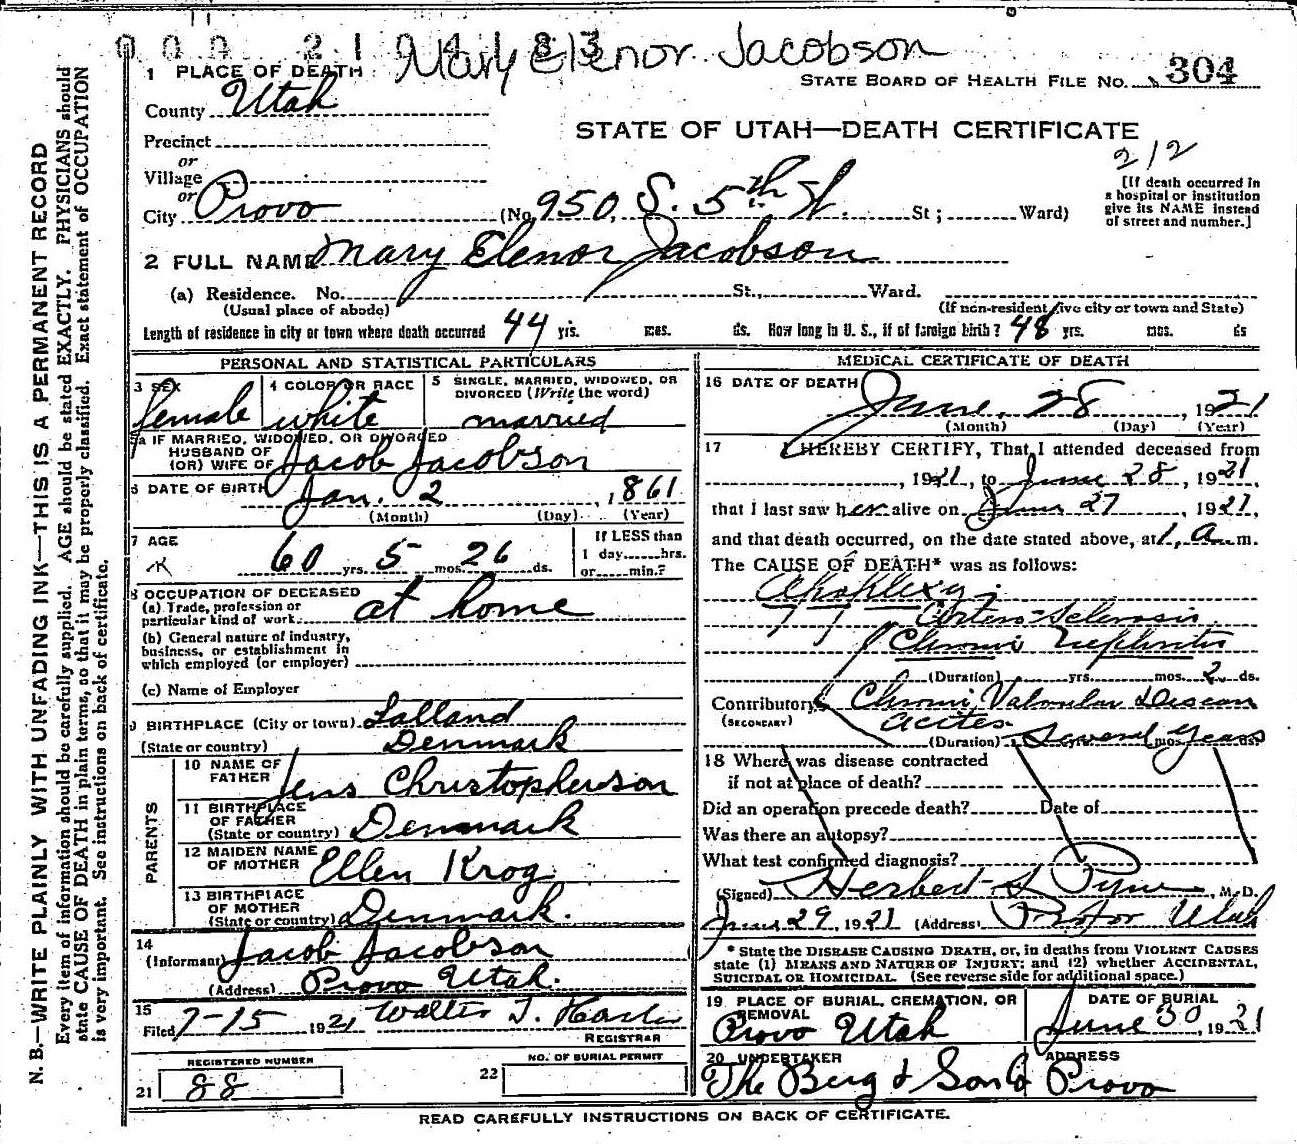 000 2194183
Mary Elenor Jacobson
1 PLACE OF DEATH
STATE BOARD OF HEALTH FILE NO. 304
County Utah
STATE OF UTAH—DEATH CERTIFICATE
Precinct
212
or
Village
or
City Provo (No. 950 S. 5th St. St; Ward)
[If death occurred in
a hospital or institution
give its NAME instead
of street and number.]
2 FULL NAME Mary Elenor Jacobson
(a) Residence. No. St., Ward.
(Usual place of abode) (If non-resident give city or town and State)
Length of residence in city or town where death occurred 44 yrs. mos. ds. How long in U. S., if of foreign birth? 48 yrs. mos. ds
PERSONAL AND STATISTICAL PARTICULARS
3 SEX female
4 COLOR OR RACE white
5 SINGLE, MARRIED, WIDOWED, OR
DIVORCED (Write the word)
married
5a IF MARRIED, WIDOWED, OR DIVORCED
HUSBAND OF
(OR) WIFE OF Jacob Jacobson
6 DATE OF BIRTH Jan. 2, 1861
(Month) (Day) (Year)
7 AGE
60 yrs. 5 mos. 26 ds.
If LESS than
1 day......hrs.
or......min.?
8 OCCUPATION OF DECEASED
(a) Trade, profession or
particular kind of work at home
(b) General nature of industry,
business, or establishment in
which employed (or employer)
(c) Name of Employer
9 BIRTHPLACE (City or town) Lalland
(State or country) Denmark
PARENTS
10 NAME OF
FATHER Jens Christopherson
11 BIRTHPLACE
OF FATHER
(State or country) Denmark
12 MAIDEN NAME
OF MOTHER Ellen Krog
13 BIRTHPLACE
OF MOTHER
(State or country) Denmark.
14
(Informant) Jacob Jacobson
(Address) Provo Utah.
15
Filed 7-15 1921 Walter T.
REGISTRAR
REGISTERED NUMBER
21 88
NO. OF BURIAL PERMIT
22
MEDICAL CERTIFICATE OF DEATH
16 DATE OF DEATH June, 28, 1921
(Month) (Day) (Year)
17 I HEREBY CERTIFY, That I attended deceased from
, 1921, to June 28, 1921,
that I last saw her alive on June 27, 1921,
and that death occurred, on the date stated above, at 1, a. m.
The CAUSE OF DEATH* was as follows:
Apoplexy.
Artero-Sclerosis
Chronic Nephritis
(Duration) yrs. mos. 2 ds.
Contributory Chronic Valvular Disease
(SECONDARY) acites
(Duration) Several yrs. mos. Years ds.
18 Where was disease contracted
if not at place of death?
Did an operation precede death? Date of
Was there an autopsy?
What test confirmed diagnosis?
(Signed) Herbert S Pyne, M.D.
June 29, 1921 (Address) Provo Utah
* State the DISEASE CAUSING DEATH, or, in deaths from VIOLENT CAUSES
state (1) MEANS AND NATURE OF INJURY; and (2) whether ACCIDENTAL,
SUICIDAL OR HOMICIDAL. (See reverse side for additional space.)
19 PLACE OF BURIAL, CREMATION, OR
REMOVAL
Provo Utah
DATE OF BURIAL
June 30, 1921
20 UNDERTAKER
The Berg & Sons Co
ADDRESS
Provo
READ CAREFULLY INSTRUCTIONS ON BACK OF CERTIFICATE.
N. B.—WRITE PLAINLY WITH UNFADING INK—THIS IS A PERMANENT RECORD
Every item of information should be carefully supplied. AGE should be stated EXACTLY. PHYSICIANS should
state CAUSE OF DEATH in plain terms, so that it may be properly classified. Exact statement of OCCUPATION
is very important. See instructions on back of certificate.